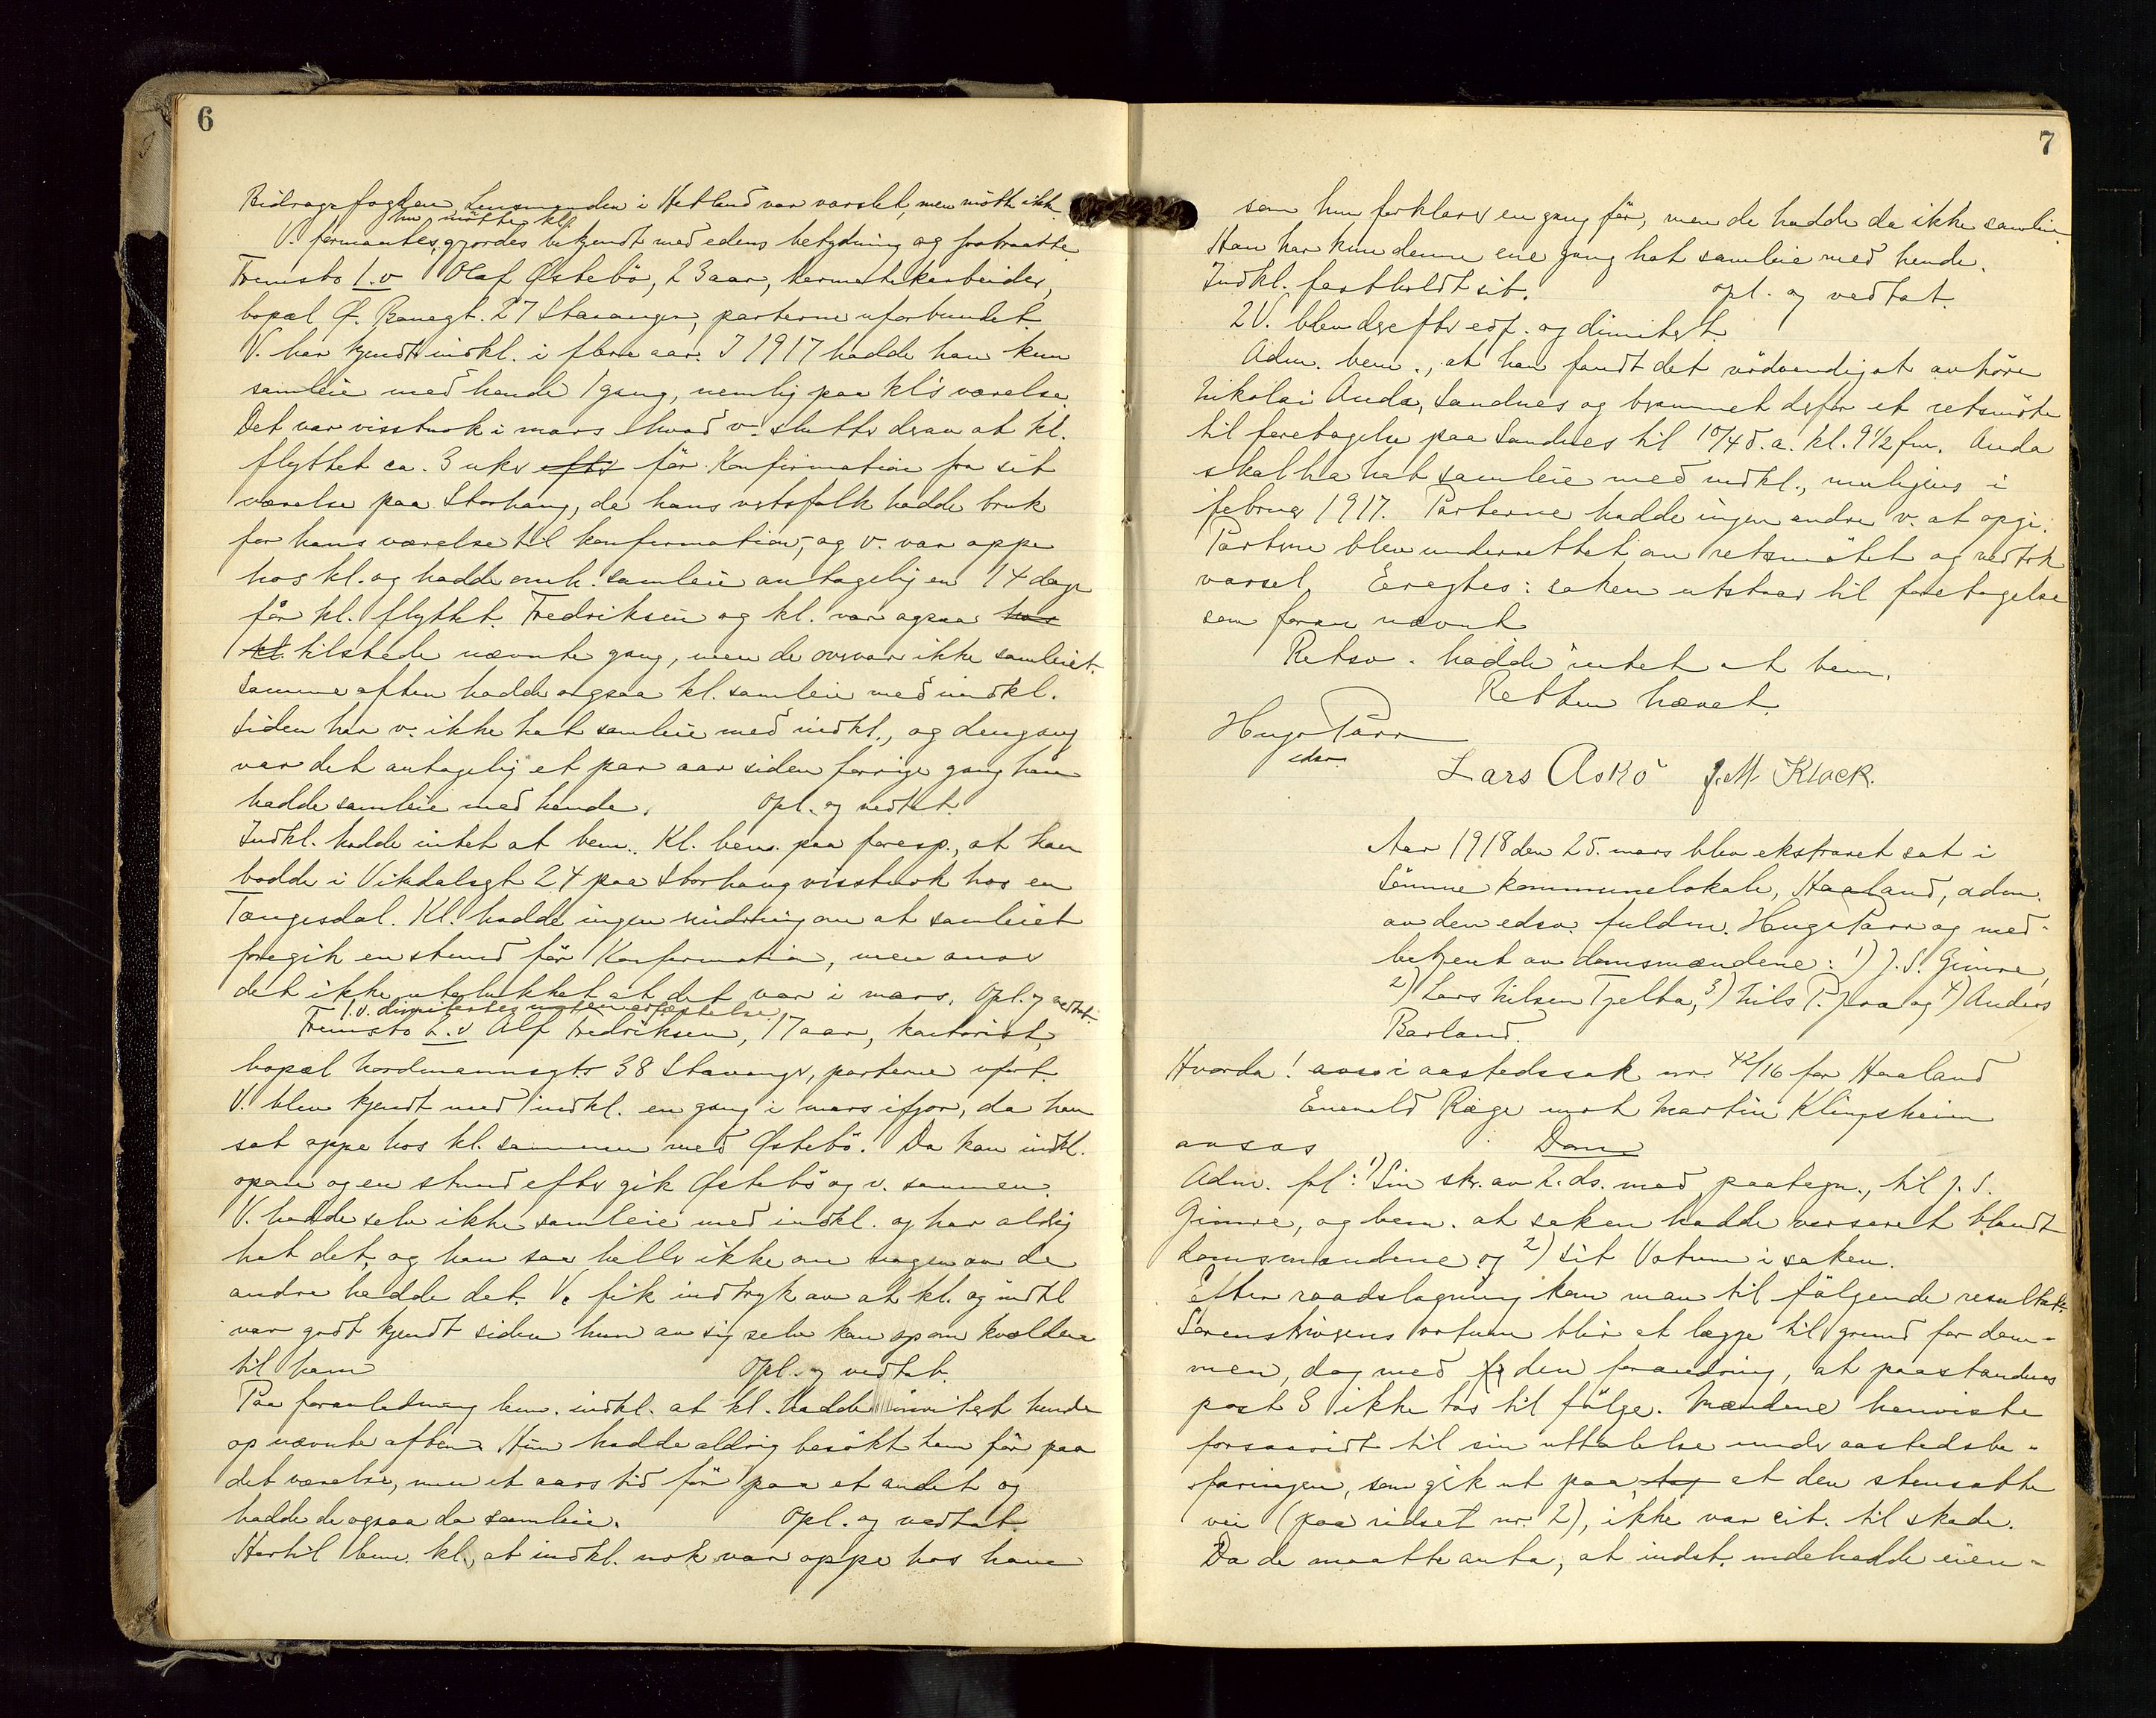 6
Bidragsfogden Lensmanden i Hetland var varslet, men mötte ikke.
nu mötte kl.
V. formantes, gjordes bekjendt med edens betydning og foretraatte
Fremsto 1. v Olaf Østebö, 23 aar, hermetikarbeider,
bopæl Ø. Banegt. 27 Stavanger, parterne uforbundet.
V. har kjendt indkl. i flere aar. I 1917 hadde han kun
samleie med hende 1 gang, nemlig paa kl's værelse.
Det var visstnok i mars hvad v. slutter derav at kl.
flyttet ca. 3 uker efter för Konfirmation fra sit
værelse paa Storhaug, da hans vertsfolk hadde bruk
for hans værelse til konfirmation, og v. var oppe
hos kl. og hadde omh. samleie antagelig en 14 dage
för kl. flyttet. Fredriksen og kl. var ogsaa hos
kl. tilstede nævnte gang, men de overvar ikke samleiet.
Samme aften hadde ogsaa kl. samleie med indkl.
Siden har v. ikke hat samleie med indkl., og dengang
var det antagelig et par aar siden forrige gang han
hadde samleie med hende. Opl. og vedtat.
Indkl. hadde intet at bem. Kl. bem. paa foresp., at han
bodde i Vikdalsgt 24 paa Storhaug visstnok hos en
Tængesdal. Kl. hadde ingen erindring om at samleiet
foregik en stund för Konfirmation, men anser
det ikke utelukket at det var i mars. Opl. og vedtat.
1. v. dimitertes uten edfæstelse.
Fremsto 2. v Alf Fredriksen, 17 aar, kontorist,
bopæl Nordmannsgt. 38 Stavanger, parterne uforb.
V. blev kjendt med indkl. en gang i mars ifjor, da han
sat oppe hos kl. sammen med Østebö. Da kom indkl.
opom og en stund efter gik Østebö og v. sammen.
V. hadde selv ikke samleie med indkl. og har aldrig
hat det, og han saa heller ikke om nogen av de
andre hadde det. V. fik indtryk av at kl. og indkl
var godt kjendt siden hun av sig selv kom opom kvelden
til ham Opl. og vedtat.
Paa foranledning bem. indkl. at kl. hadde invitert hende
op nævnte aften. Hun hadde aldrig besökt ham för paa
det værelse, men et aars tid för paa et andet og
hadde de ogsaa da samleie. Opl. og vedtat.
Hertil bem. kl., at indkl. nok var oppe hos ham
7
som hun forklarer en gang för, men de hadde da ikke samleie.
Han har kun denne ene gang hat samleie med hende.
Indkl. fastholdt sit. opl. og vedtat.
2 V. blev derefter edf. og dimitert.
Adm. bem., at han fandt det nödvendig at avhöre
Nikolai Anda, Sandnes og berammet derfor et retsmöte
til foretagelse paa Sandnes til 10/4 d. a. kl. 9 1/2 fm. Anda
skal ha hat samleie med indkl., muligens i
februar 1917. Parterne hadde ingen andre v. at opgi.
Parterne blev underrettet om retsmötet og vedtok
varsel. Eragtes: saken utstaar til foretagelse
som foran nævnt
Retsv. hadde intet at bem.
Retten hævet.
Hugo Parr
edsv.
Lars Askö J. M. Klock.
Aar 1918 den 25. mars blev ekstraret sat i
Sömme kommunelokale, Haaland, adm.
av den edsv. fuldm. Hugo Parr og med-
betjent av domsmændene: 1) J. S. Gimre,
2) Lars Nilsen Tjelta, 3) Nils P. Joa og 4) Anders
Barland.
Hvorda! avso i aastedssak nr. 42/16 for Haaland
Enevald Ræge mot Martin Klingsheim
avsas Dom
Adm. fl: 1) Sin skr. av 2. ds. med paategn., til J. S.
Gimre, og bem. at saken hadde versert blandt
domsmændene og 2) Sit Votum i saken.
Efter raadslagning kom man til fölgende resultat:
Sorenskrivens votum blir at lægge til grund for dom-
men, dog med fr den forandring, at paastandens
post 3 ikke tas til fölge. Mændene henviste
forsaavidt til sin uttalelse under aastedsbe-
faringen, som gik ut paa, tog at den stensatte
vei (paa ridset nr. 2), ikke var cit. til skade.
Da de maatte anta, at indst. indehadde eien-